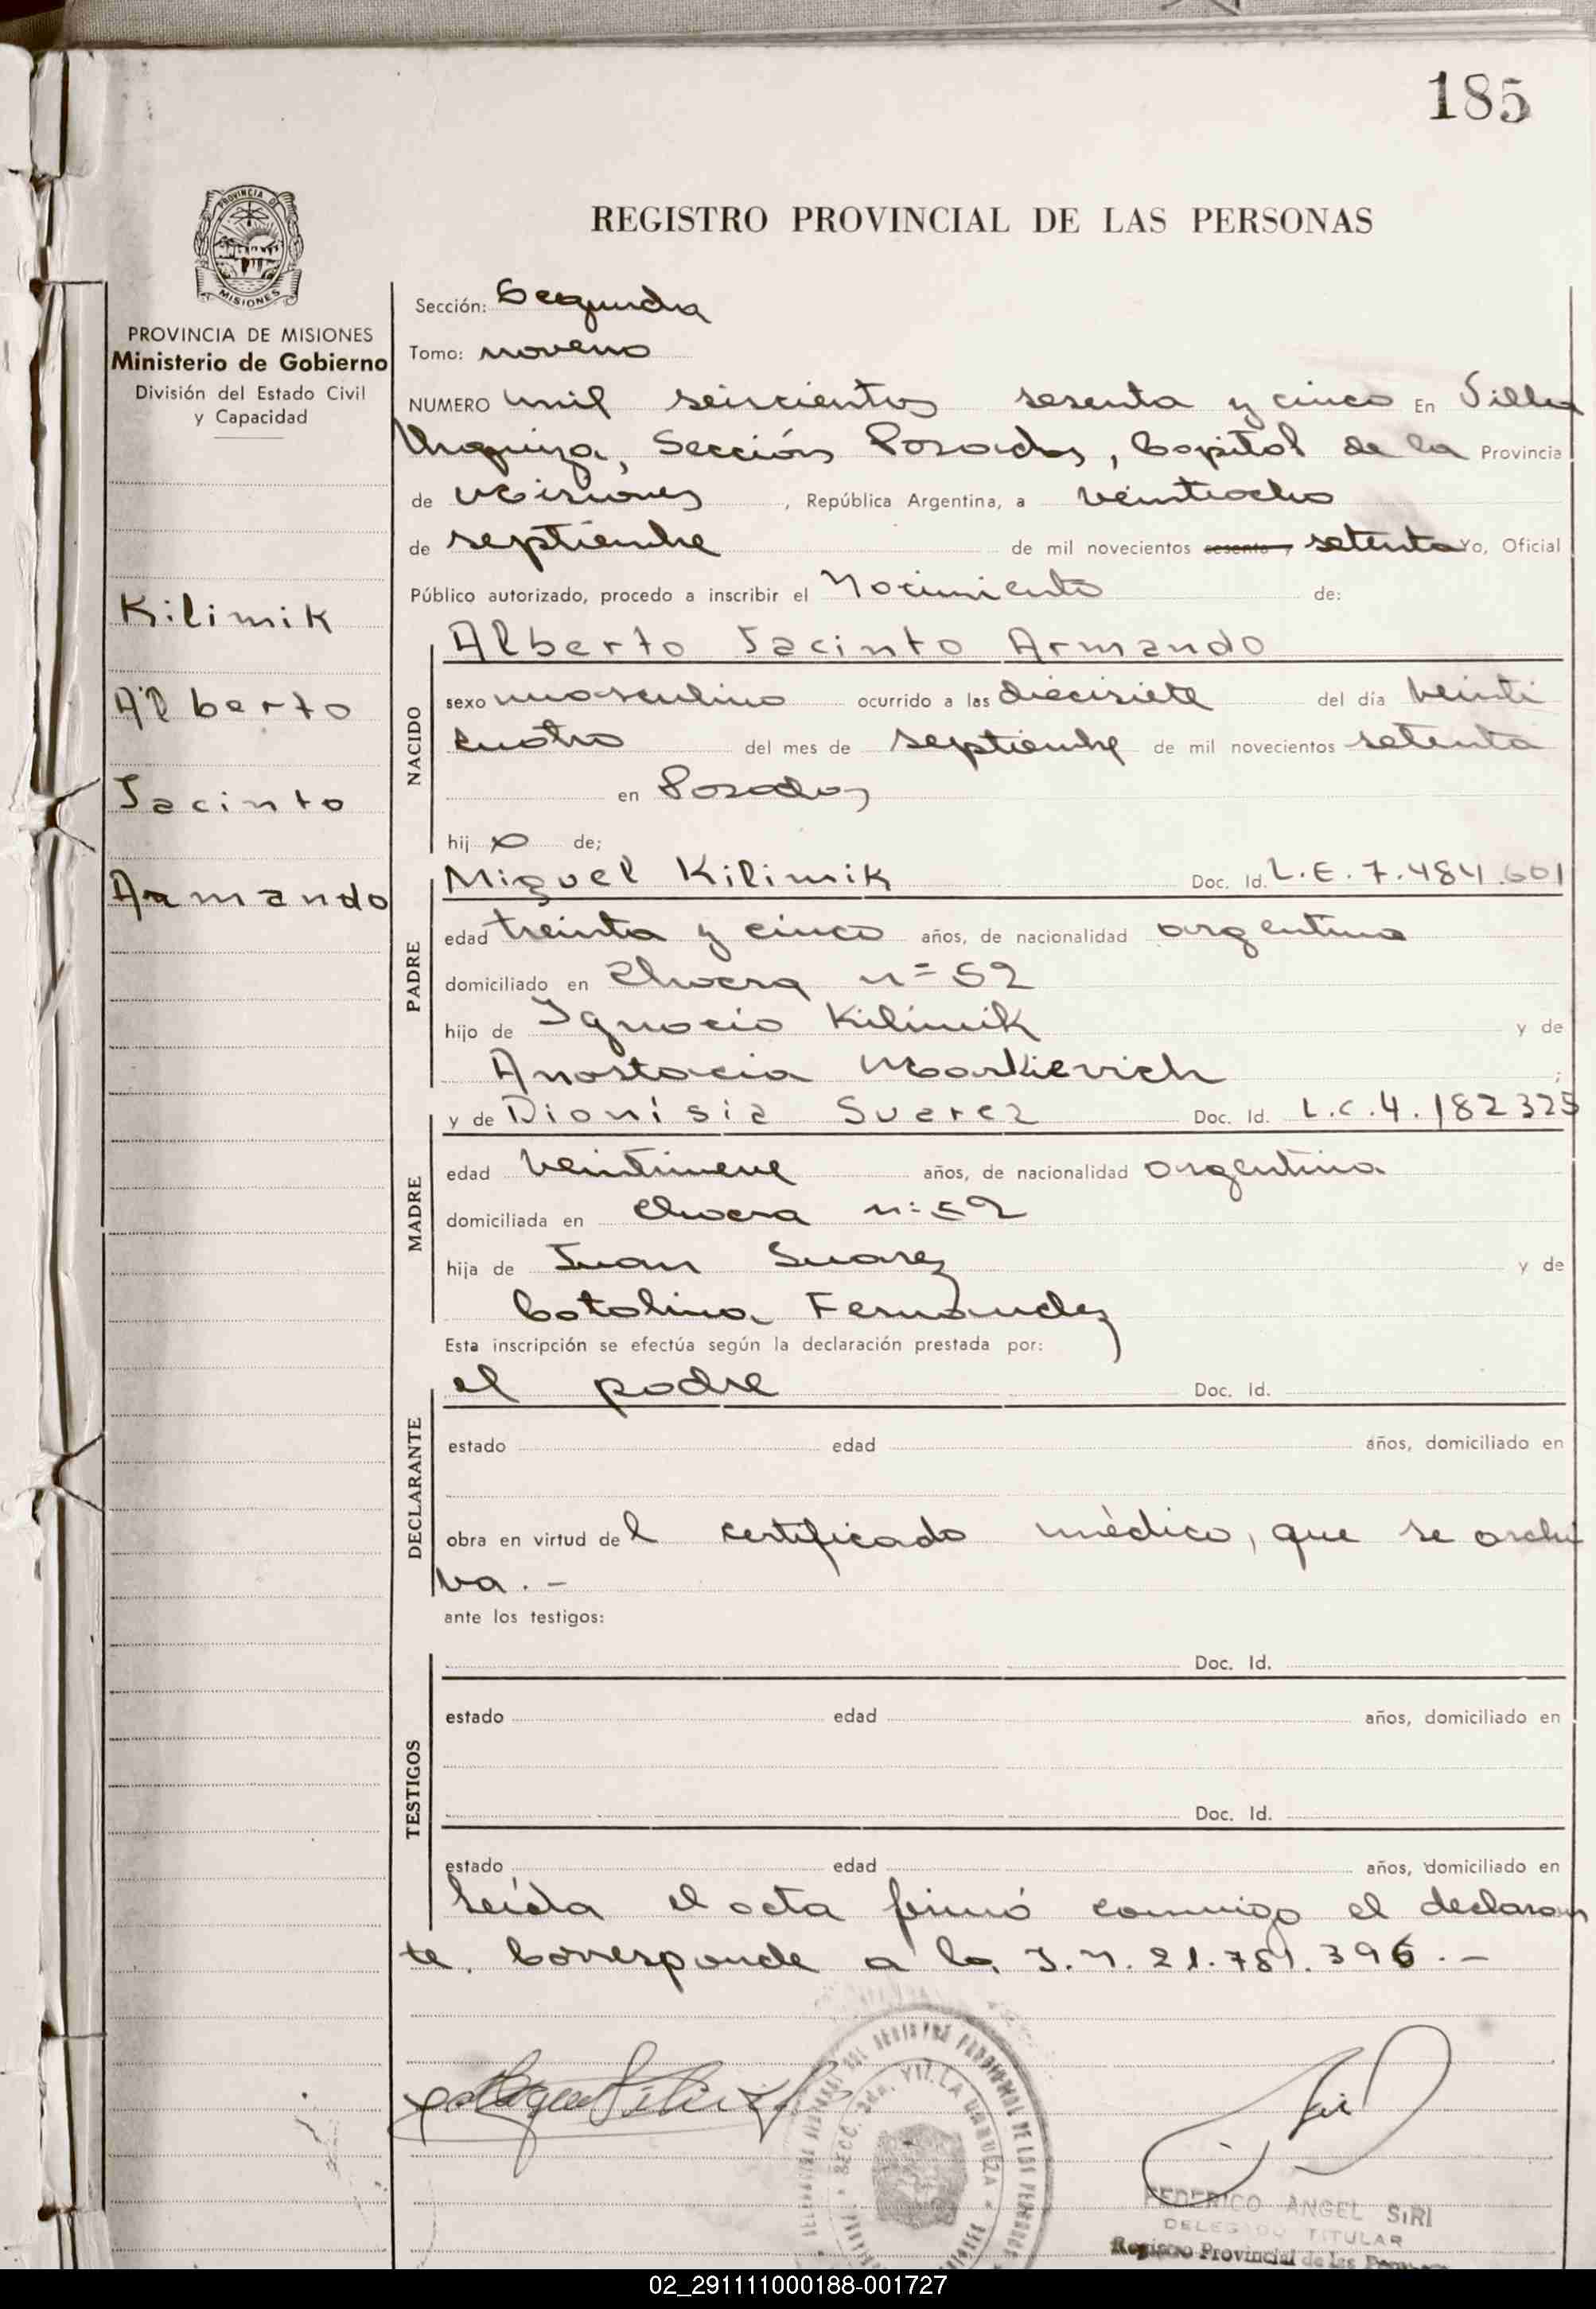 185
REGISTRO PROVINCIAL DE LAS PERSONAS
PROVINCIA DE MISIONES
PROVINCIA DE MISIONES
Ministerio de Gobierno
División del Estado Civil
y Capacidad
Kilimik
Alberto
Jacinto
Armando
Sección: Segunda
Tomo: noveno
NUMERO mil seiscientos sesenta y cinco En Villa
Urquiza, Sección Posadas, Capital de la Provincia
de Misiones, República Argentina, a veintiocho
de septiembre de mil novecientos sesenta y setenta Yo, Oficial
Público autorizado, procedo a inscribir el Nacimiento de:
NACIDO
Alberto Jacinto Armando
sexo masculino ocurrido a las diecisiete del día veinti
cuatro del mes de septiembre de mil novecientos setenta
en Posadas
hijo de;
PADRE
Miguel Kilimik Doc. Id. L.E. 7.484.601
edad treinta y cinco años, de nacionalidad argentina
domiciliado en Chacra n= 52
hijo de Ignacio Kilimik y de
Anastacia Markievich;
MADRE
y de Dionisia Suarez Doc. Id. L.C.4.182325
edad veintinueve años, de nacionalidad argentina
domiciliada en Chacra n: 52
hija de Juan Suarez y de
Catalina Fernandez
Esta inscripción se efectúa según la declaración prestada por:
DECLARANTE
el padre Doc. Id.
estado edad años, domiciliado en
obra en virtud del certificado médico, que se archi
va. -
ante los testigos:
TESTIGOS
Doc. Id.
estado edad años, domiciliado en
Doc. Id.
estado edad años, domiciliado en
Leída el acta firmó conmigo el declaran
te. Corresponde a la I.N. 21.781.396.-
SECC. 2da. VILLA URQUIZA
FEDERICO ANGEL SIRI
DELEGADO TITULAR
Registro Provincial de las
02_291111000188-001727